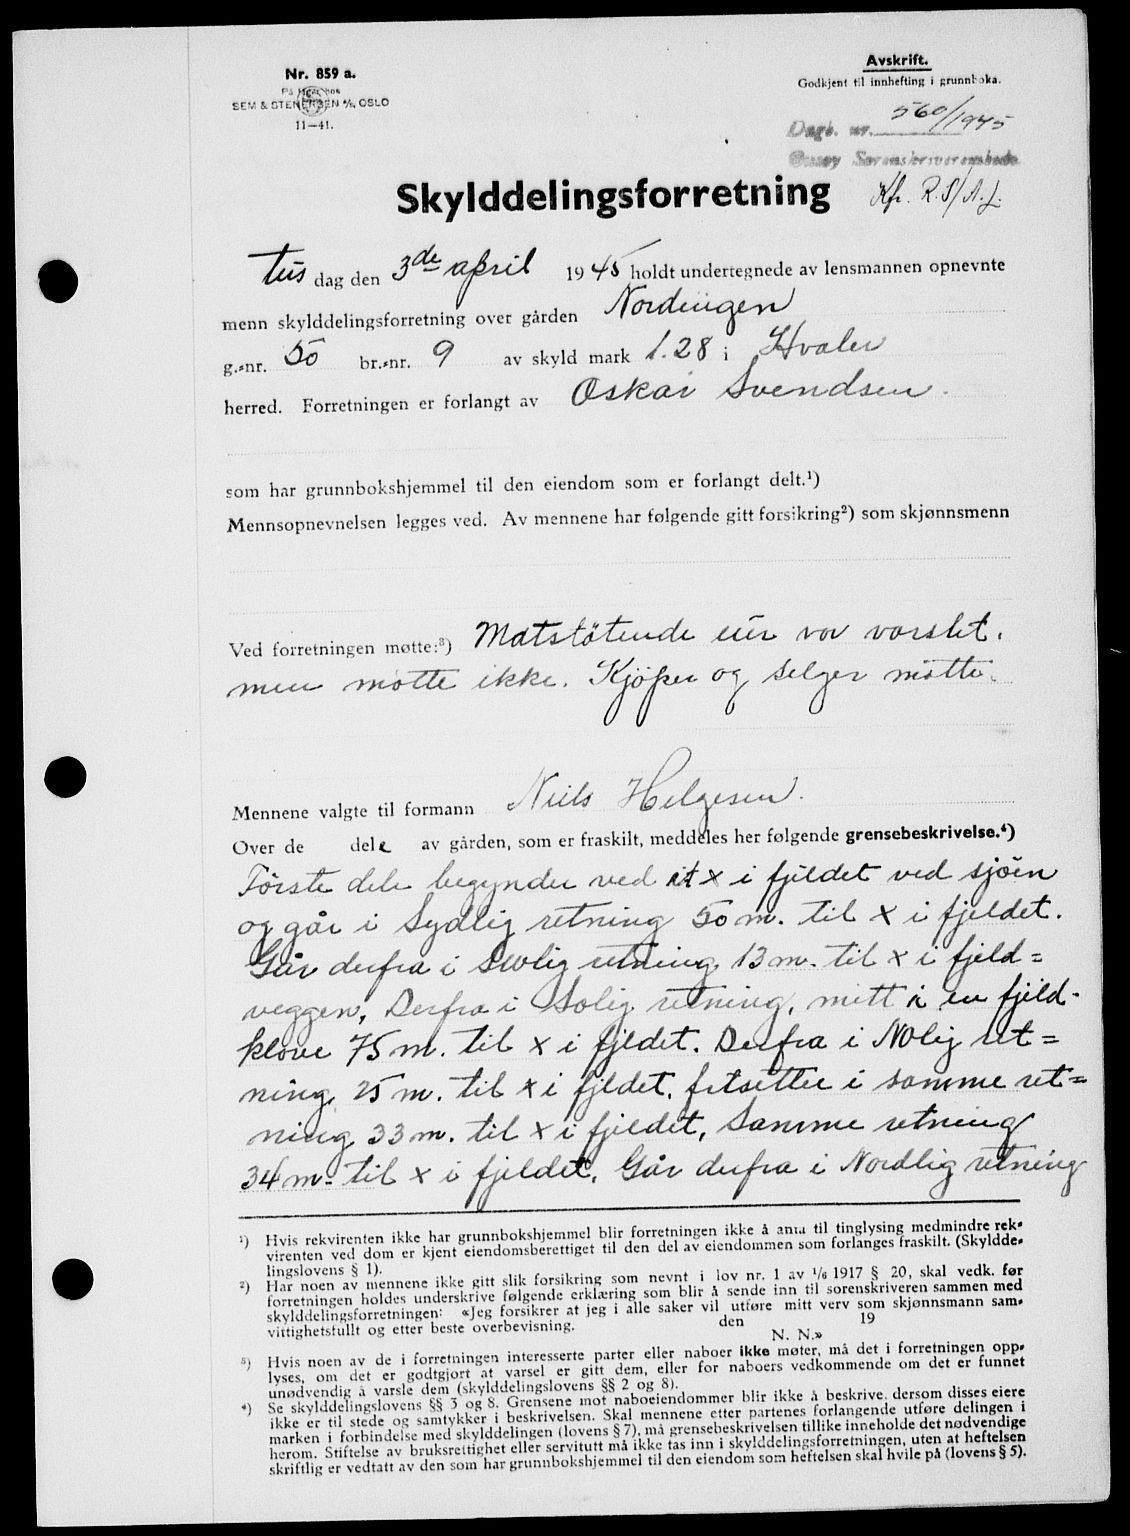 Nr. 859 a.
På lager hos
SEM & STENERSEN A/S, OSLO
11—41.
Avskrift.
Godkjent til innhefting i grunnboka.
Dagb. nr. 560/1945
Onsøy Sorenskriverembede
Kfr. R. S/A. J.
Skylddelingsforretning
Tirs dag den 3de april 1945 holdt undertegnede av lensmannen opnevnte
menn skylddelingsforretning over gården Nordengen
g.-nr. 50 br.-nr. 9 av skyld mark 1.28 i Hvaler
herred. Forretningen er forlangt av Oskar Svendsen.
som har grunnbokshjemmel til den eiendom som er forlangt delt.¹)
Mennsopnevnelsen legges ved. Av mennene har følgende gitt forsikring²) som skjønnsmenn
Ved forretningen møtte:³) Motstötende eier var varslet,
men møtte ikke. Kjöper og selger mötte.
Mennene valgte til formann Niels Helgesen.
Over de dele av gården, som er fraskilt, meddeles her følgende grensebeskrivelse.⁴)
Förste dele begynder ved et x i fjeldet ved sjöen
og går i Sydlig retning 50 m. til x i fjeldet.
Går derfra i retning 13 m. til x i fjeld=
veggen, Derfra i Solig retning, mitt i en fjeld-
kløve 75 m. til x i fjeldet. Derfra i NOlig ret=
ning 25 m. til x i fjeldet, fortsetter i samme ret=
ning 33 m. til x i fjeldet, Samme retning
34 m. til x i fjeldet. Går derfra i Nordlig retning
¹) Hvis rekvirenten ikke har grunnbokshjemmel blir forretningen ikke å anta til tinglysing medmindre rek-
virenten ved dom er kjent eiendomsberettiget til den del av eiendommen som forlanges fraskilt. (Skyldde-
lingslovens § 1).
²) Har noen av mennene ikke gitt slik forsikring som nevnt i lov nr. 1 av 1/6 1917 § 20, skal vedk. før
forretningen holdes underskrive følgende erklæring som blir å sende inn til sorenskriveren sammen med
skylddelingsforretningen: «Jeg forsikrer at jeg i alle saker vil utføre mitt verv som skjønnsmann sam-
vittighetsfullt og etter beste overbevisning. den 19
N. N.»
³) Hvis noen av de i forretningen interesserte parter eller naboer ikke møter, må det i forretningen opp-
lyses, om det er godtgjort at varsel er gitt dem, eller for naboers vedkommende om det er funnet
unødvendig å varsle dem (skylddelingslovens §§ 2 og 8).
⁴) Se skylddelingslovens §§ 3 og 8. Grensene mot naboeiendommer blir ikke å beskrive, dersom disses eiere
ikke er til stede og samtykker i beskrivelsen. Skal mennene etter partenes forlangende utføre delingen i
marken i forbindelse med skylddelingen (lovens § 7), må grensebeskrivelsen tillike inneholde det nødvendige
herom. Stiftelse av bruksrettighet eller servitutt må ikke tas inn i skylddelingsforretningen, uten at heftelsen
skriftlig er vedtatt av den som har grunnbokshjemmel til den eiendom som heftelsen skal hvile på (lovens § 5).